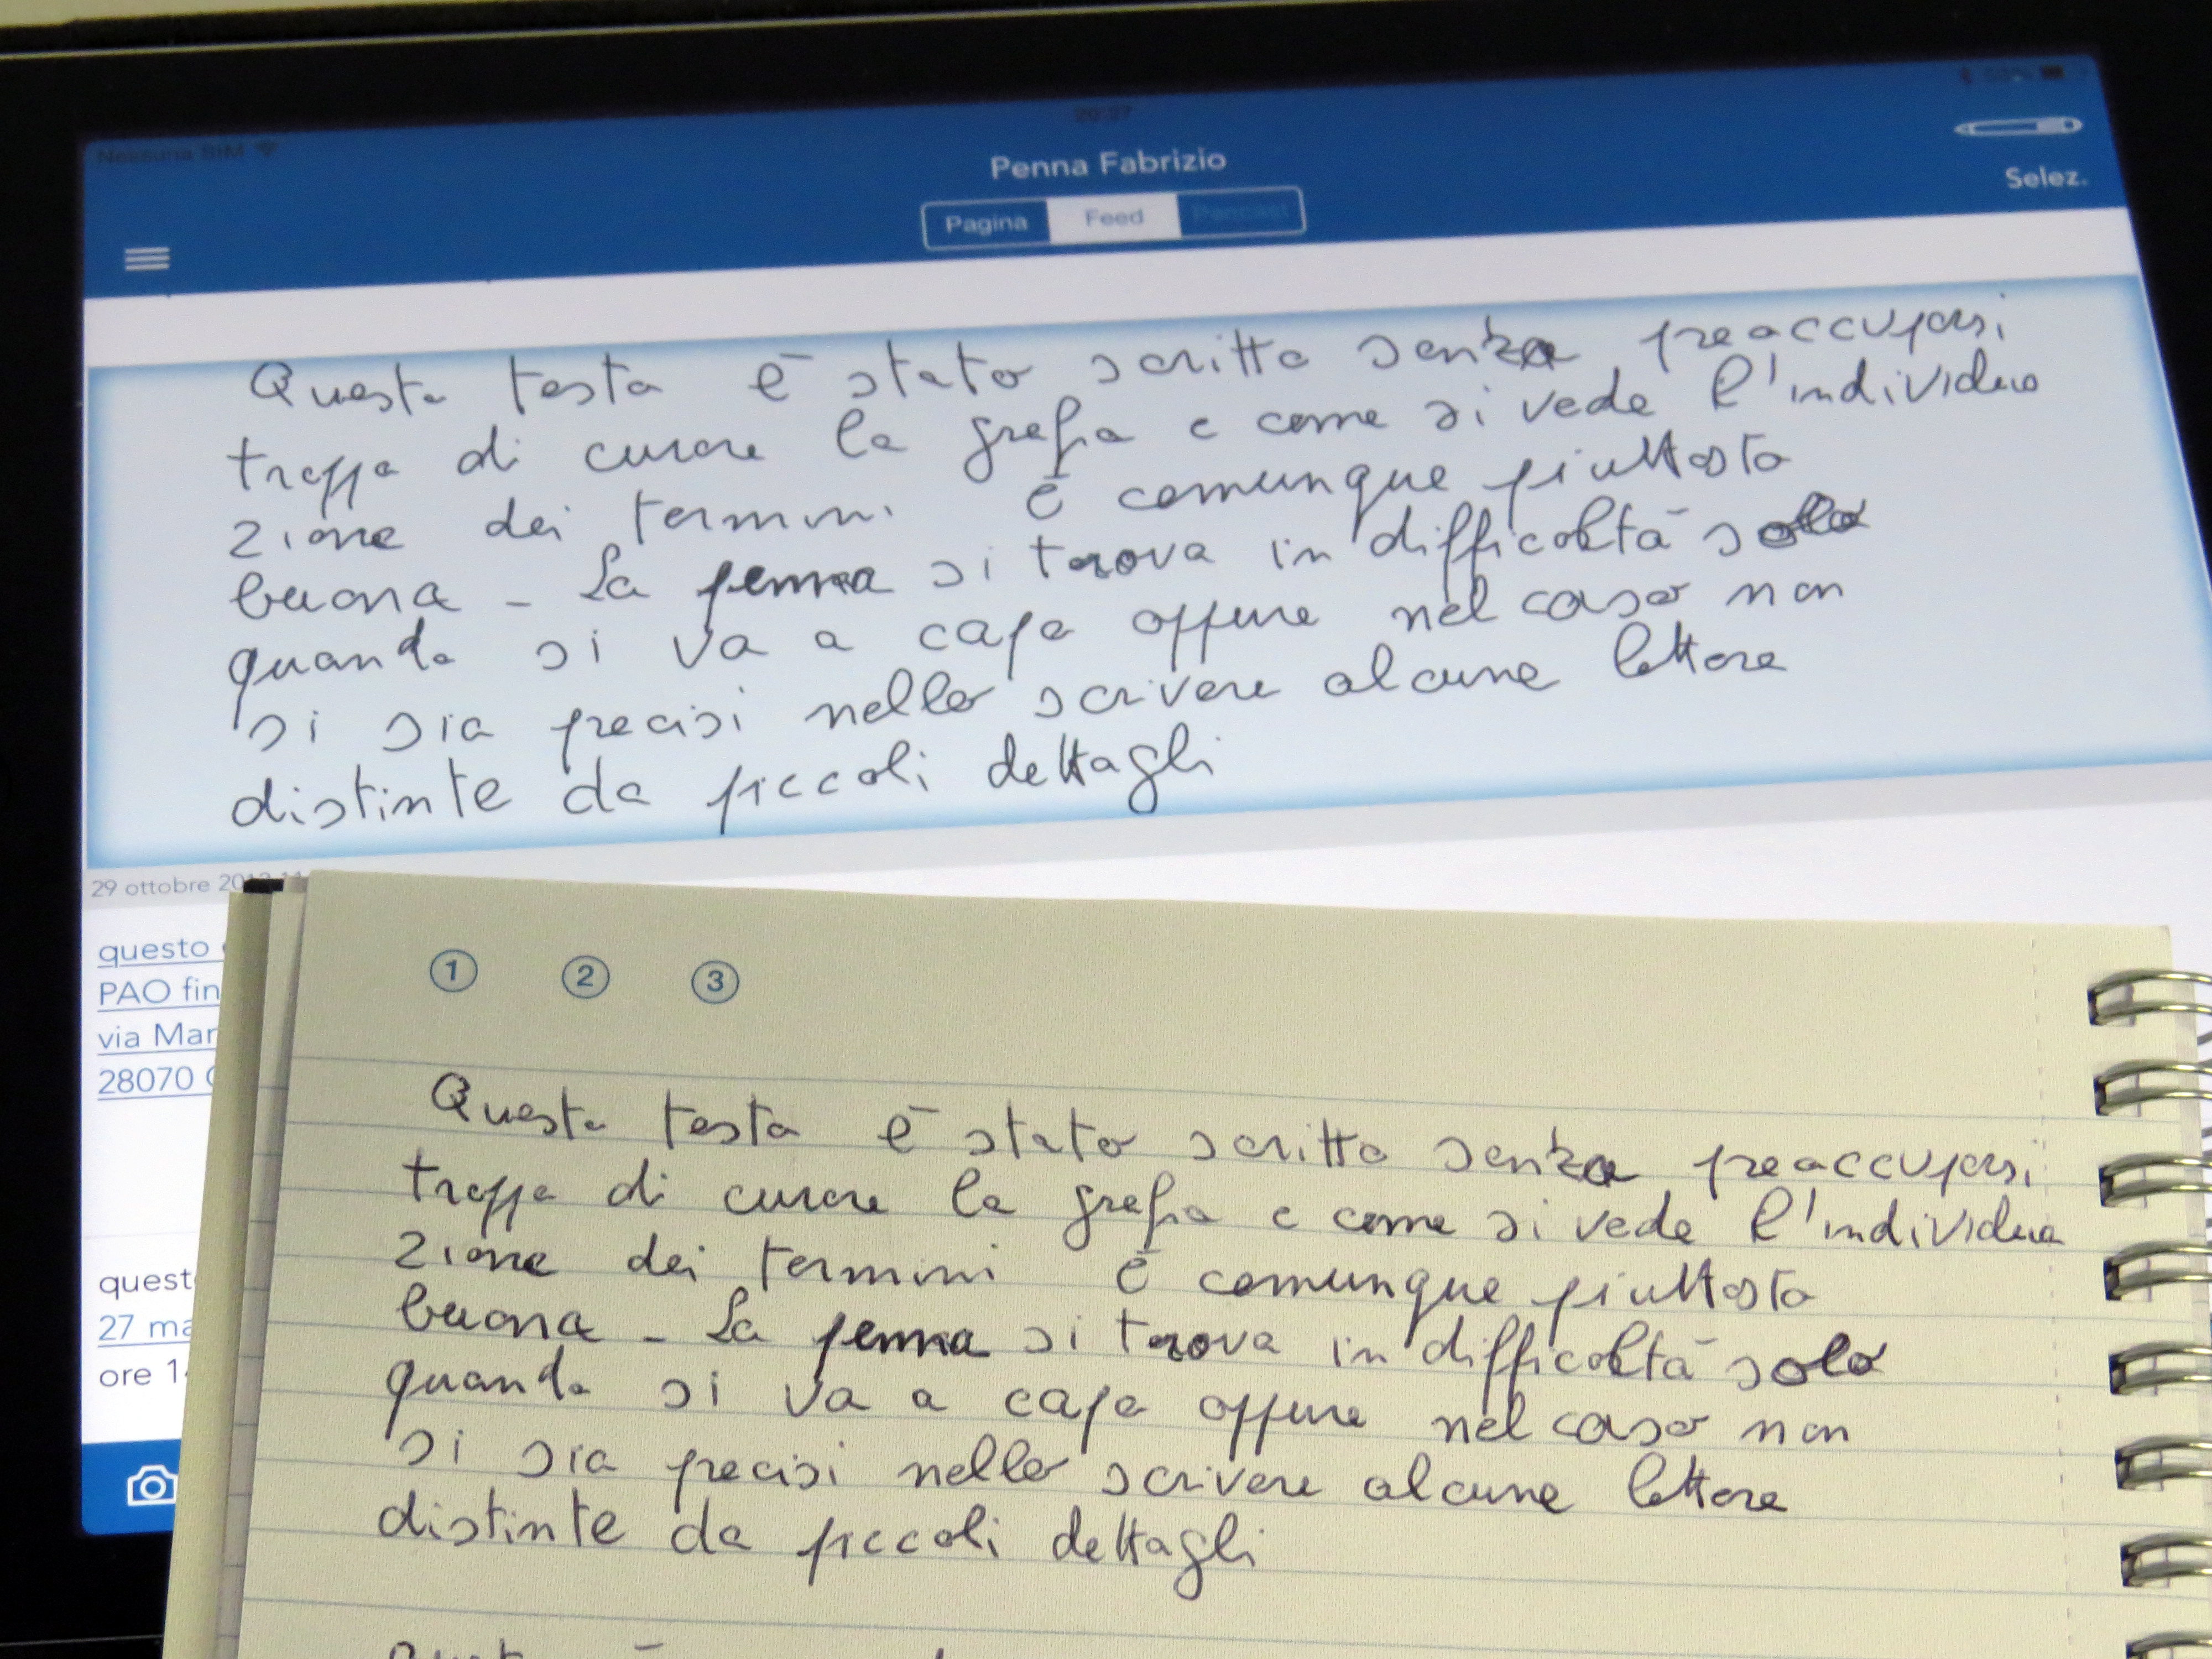 Nessuna SIM
20:27
50%
Penna Fabrizio
Selez.
Pagina Feed Pencast
Questo testo è stato scritto senza preoccuparsi
troppo di curare la grafia e come si vede l'individua
zione dei termini è comunque piuttosto
buona - La penna si trova in difficoltà solo
quando si va a capo oppure nel caso non
si sia precisi nello scrivere alcune lettere
distinte da piccoli dettagli
29 ottobre
questo
PAO fin
via Mar
28070
quest
27 ma
ore 1
1 2 3
Questo testo è stato scritto senza preoccuparsi
troppo di curare la grafia e come si vede l'individua
zione dei termini è comunque piuttosto
buona - La penna si trova in difficoltà solo
quando si va a capo oppure nel caso non
si sia precisi nello scrivere alcune lettere
distinte da piccoli dettagli